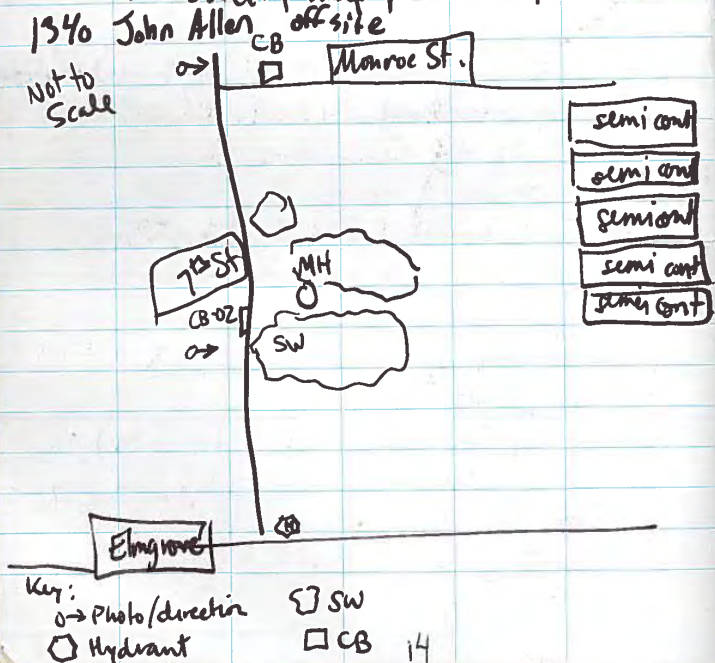 1340 John Allen offsite
CB
Monroe St.
Not to
Scale
semi cont
semi cont
semi cont
semi cont
semi cont
7th St
MH
CB-02
SW
H
Elmgrove
Key:
Photo/direction
SW
Hydrant
CB
14